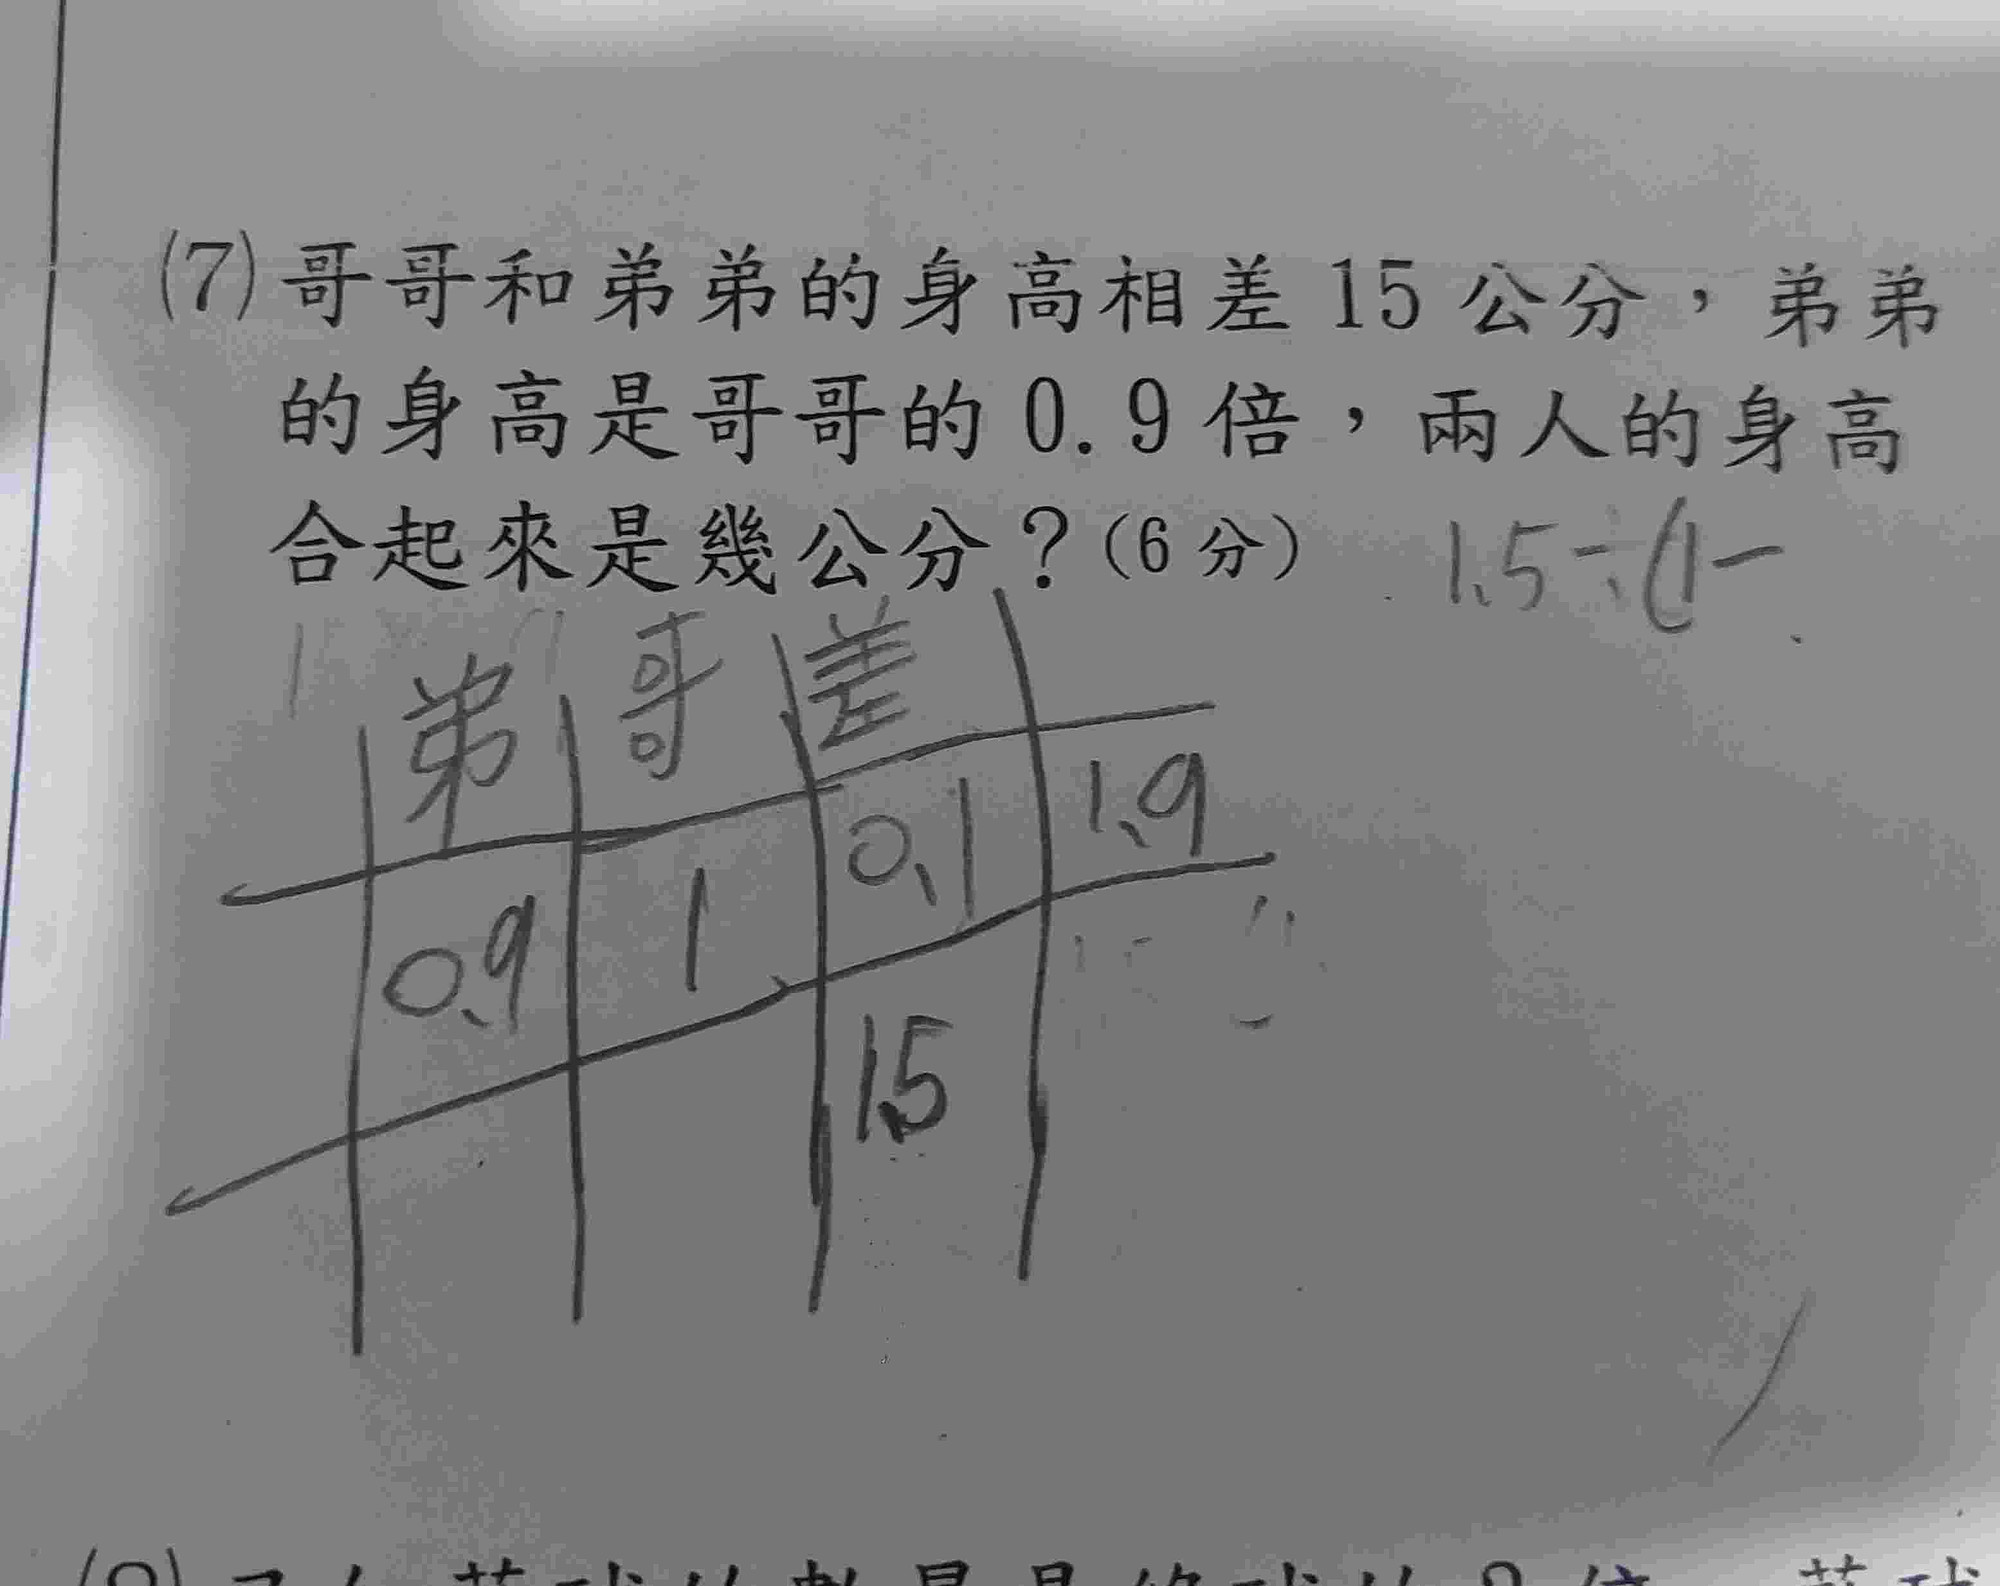 (7)哥哥和弟弟的身高相差15公分，弟弟
的身高是哥哥的0.9倍，兩人的身高
合起來是幾公分？(6分)
1.5÷(1-
弟 哥 差
0.9 1 0.1 1.9
1.5